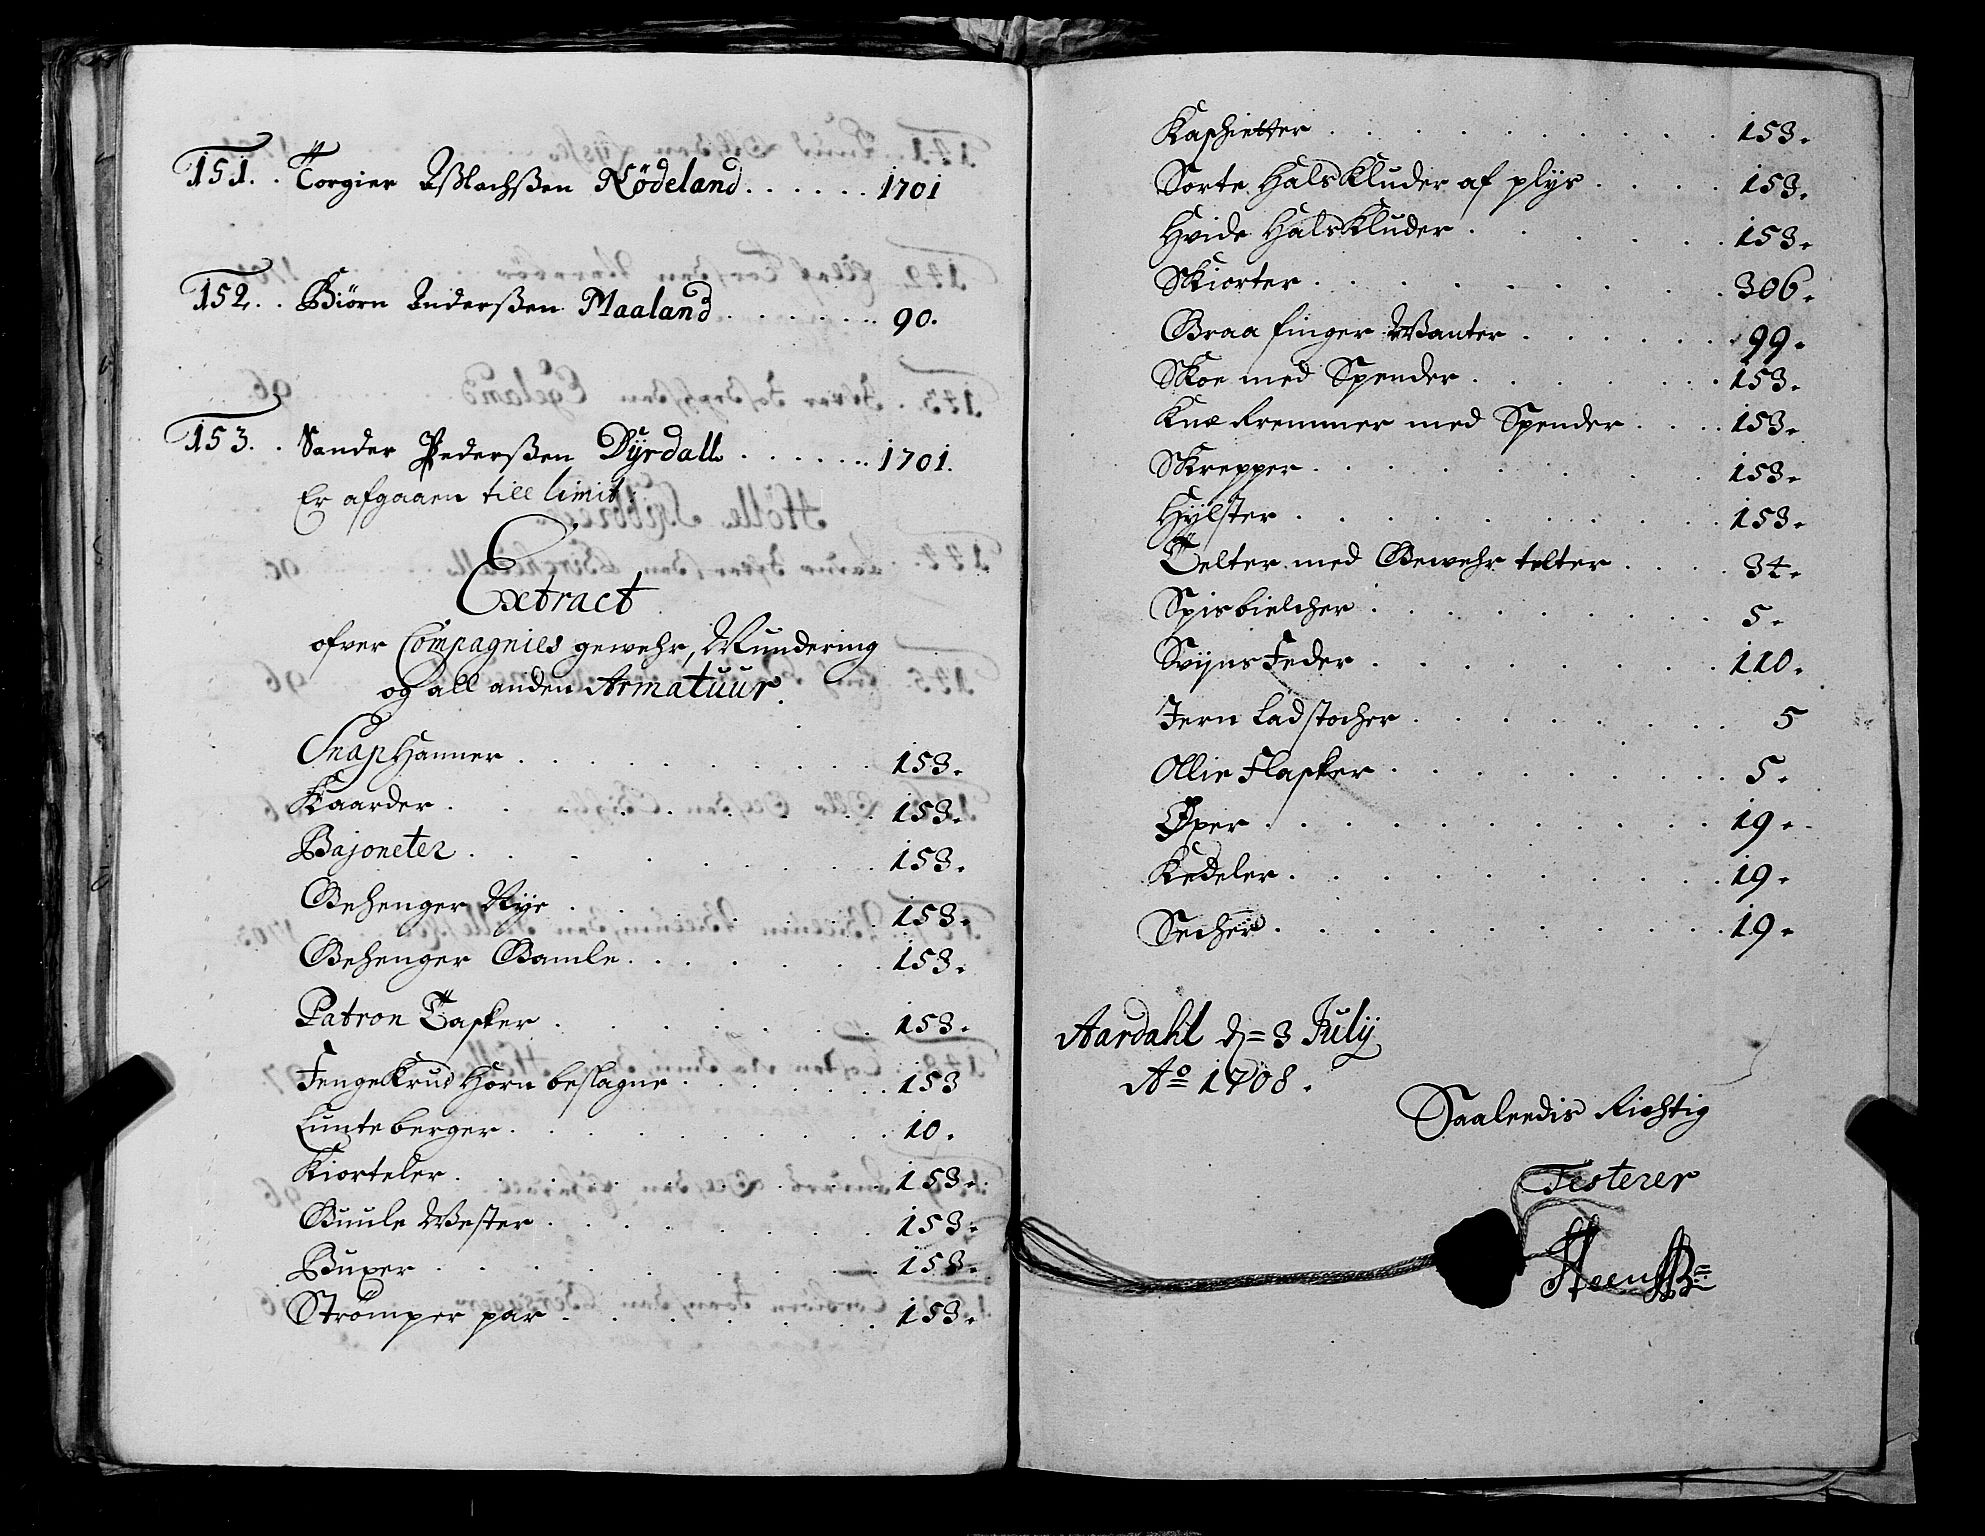 151. . Torgier Asslachssen Nödeland . . . . . . 1701
152. . Biörn Anderssen Maaland . . . . . . 90.
153. . Sander Pederssen Dÿrdall . . . . . . 1701.
Er afgaaen till limit:
Extract
ofver Compagnies gewehr, Mundering
og all anden Armatuur.
SnapHanner . . . . . . . . 153.
Kaarder . . . . . . . . 153.
Bajoneter . . . . . . . . 153.
Gehenger Nÿe . . . . . . 153.
Gehenger Gamle . . . . . . 153.
Patron Tasker . . . . . . 153.
Fengekrud Horn beslagne . . . . . 153
Lunteberger . . . . . . . 10.
Kiorteler . . . . . . . . 153.
Guule Wester . . . . . . . 153.
Buxer . . . . . . . . 153.
Strömper par . . . . . . . 153.
Kaschietter . . . . . . . . 153.
Sorte HalsKluder af plÿs . . . . 153.
Hvide HalsKluder . . . . . . 153.
Skiorter . . . . . . . . 306.
Graa finger Wanter . . . . . . 99.
Skoe med Spender . . . . . . 153.
Knæ Remmer med Spender . . . . 153.
Skrepper . . . . . . . . 153.
Hÿlster . . . . . . . . 153.
Telter med Gewehr telter . . . . 34.
Spisbielcher . . . . . . . 5.
Svÿns Feder . . . . . . . 110.
Jern Ladstocher . . . . . . . 5
Ollie Flasker . . . . . . . 5.
Øxer . . . . . . . . 19.
Kedeler . . . . . . . . 19.
Secher . . . . . . . . 19.
Aardahl d= 3 Julÿ
Ao 1708.
Saaleedis Rigtig
Testerer